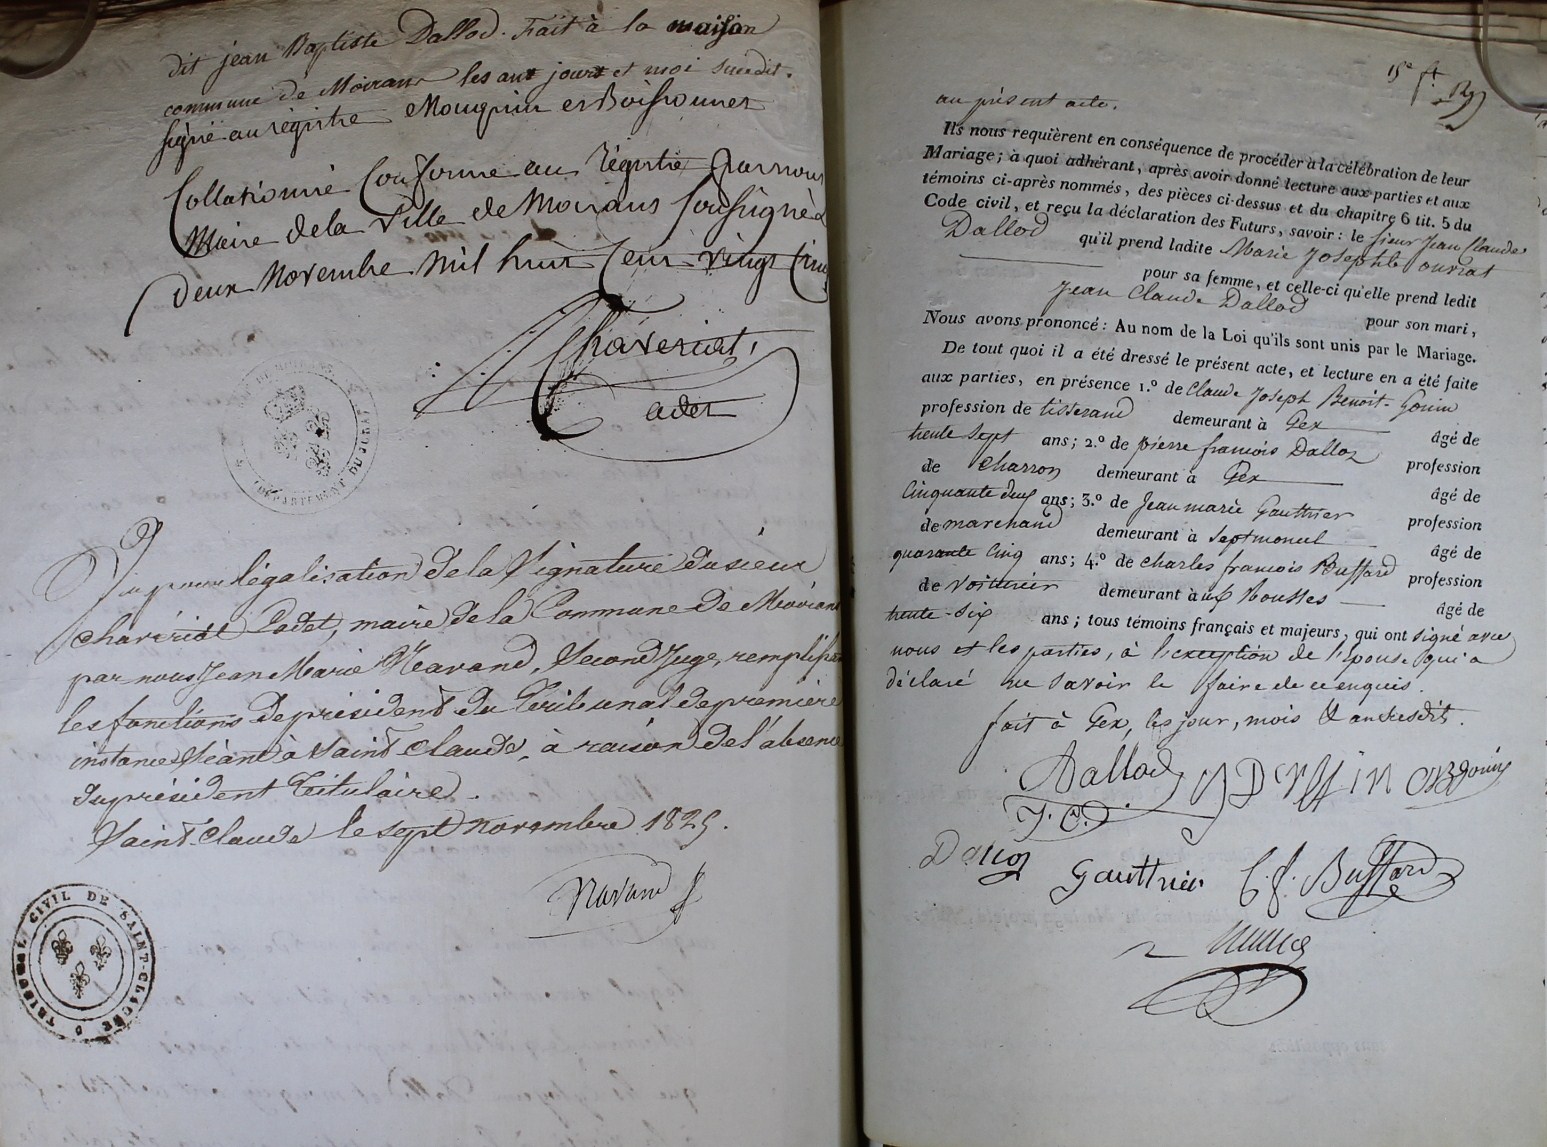 dit jean Baptiste Dallod. Fait à la maison
commune de Moirans les ant jours et moi susdit.
signé au régistre Mouquin et Boissonnet
Collationné Conforme au régistre par nous
Maire de la Ville de Moirans Soussigné Le
deux Novembre Mil huit Cent vingt Cinq
Chaveriat,
Cadet
DÉPARTEMENT DU JURA
Vu pour légalisation de la Signature du sieur
Chaveriat Cadet, maire de la Commune de Moirans
par nous Jean Marie Navand, Second Juge, remplissant
les fonctions de président du Tribunal de première
instance Séant à Saint Claude, à raison de l'absence
du président titulaire.
Saint-Claude le sept novembre 1825.
Navand
TRIBUNAL CIVIL DE SAINT-CLAUDE
15e ft
au présent acte.
Ils nous requièrent en conséquence de procéder à la célébration de leur
Mariage; à quoi adhérant, après avoir donné lecture aux parties et aux
témoins ci-après nommés, des pièces ci-dessus et du chapitre 6 tit. 5 du
Code civil, et reçu la déclaration des Futurs, savoir: le sieur Jean Claude
Dallod qu'il prend ladite Marie Josephte
pour sa femme, et celle-ci qu'elle prend ledit
Jean Claude Dallod pour son mari,
Nous avons prononcé: Au nom de la Loi qu'ils sont unis par le Mariage.
De tout quoi il a été dressé le présent acte, et lecture en a été faite
aux parties, en présence 1.º de Claude Joseph Benoit-Gouin
profession de tisserand demeurant à Gex âgé de
trente sept ans; 2.º de pierre françois Dalloz profession
de Charron demeurant à Gex âgé de
Cinquante deux ans; 3.º de Jean marie Gauthier profession
de marchand demeurant à Septmoncel âgé de
quarante Cinq ans; 4.º de Charles françois Buffard profession
de Voiturier demeurant aux Rousses âgé de
trente-six ans; tous témoins français et majeurs, qui ont signé avec
nous et les parties, à l'exception de l'épouse qui a
déclaré ne savoir le faire de ce enquis.
fait à Gex, les jour, mois & an susdits.
Dallod
J. C.
Gauthier C. f. Buffard